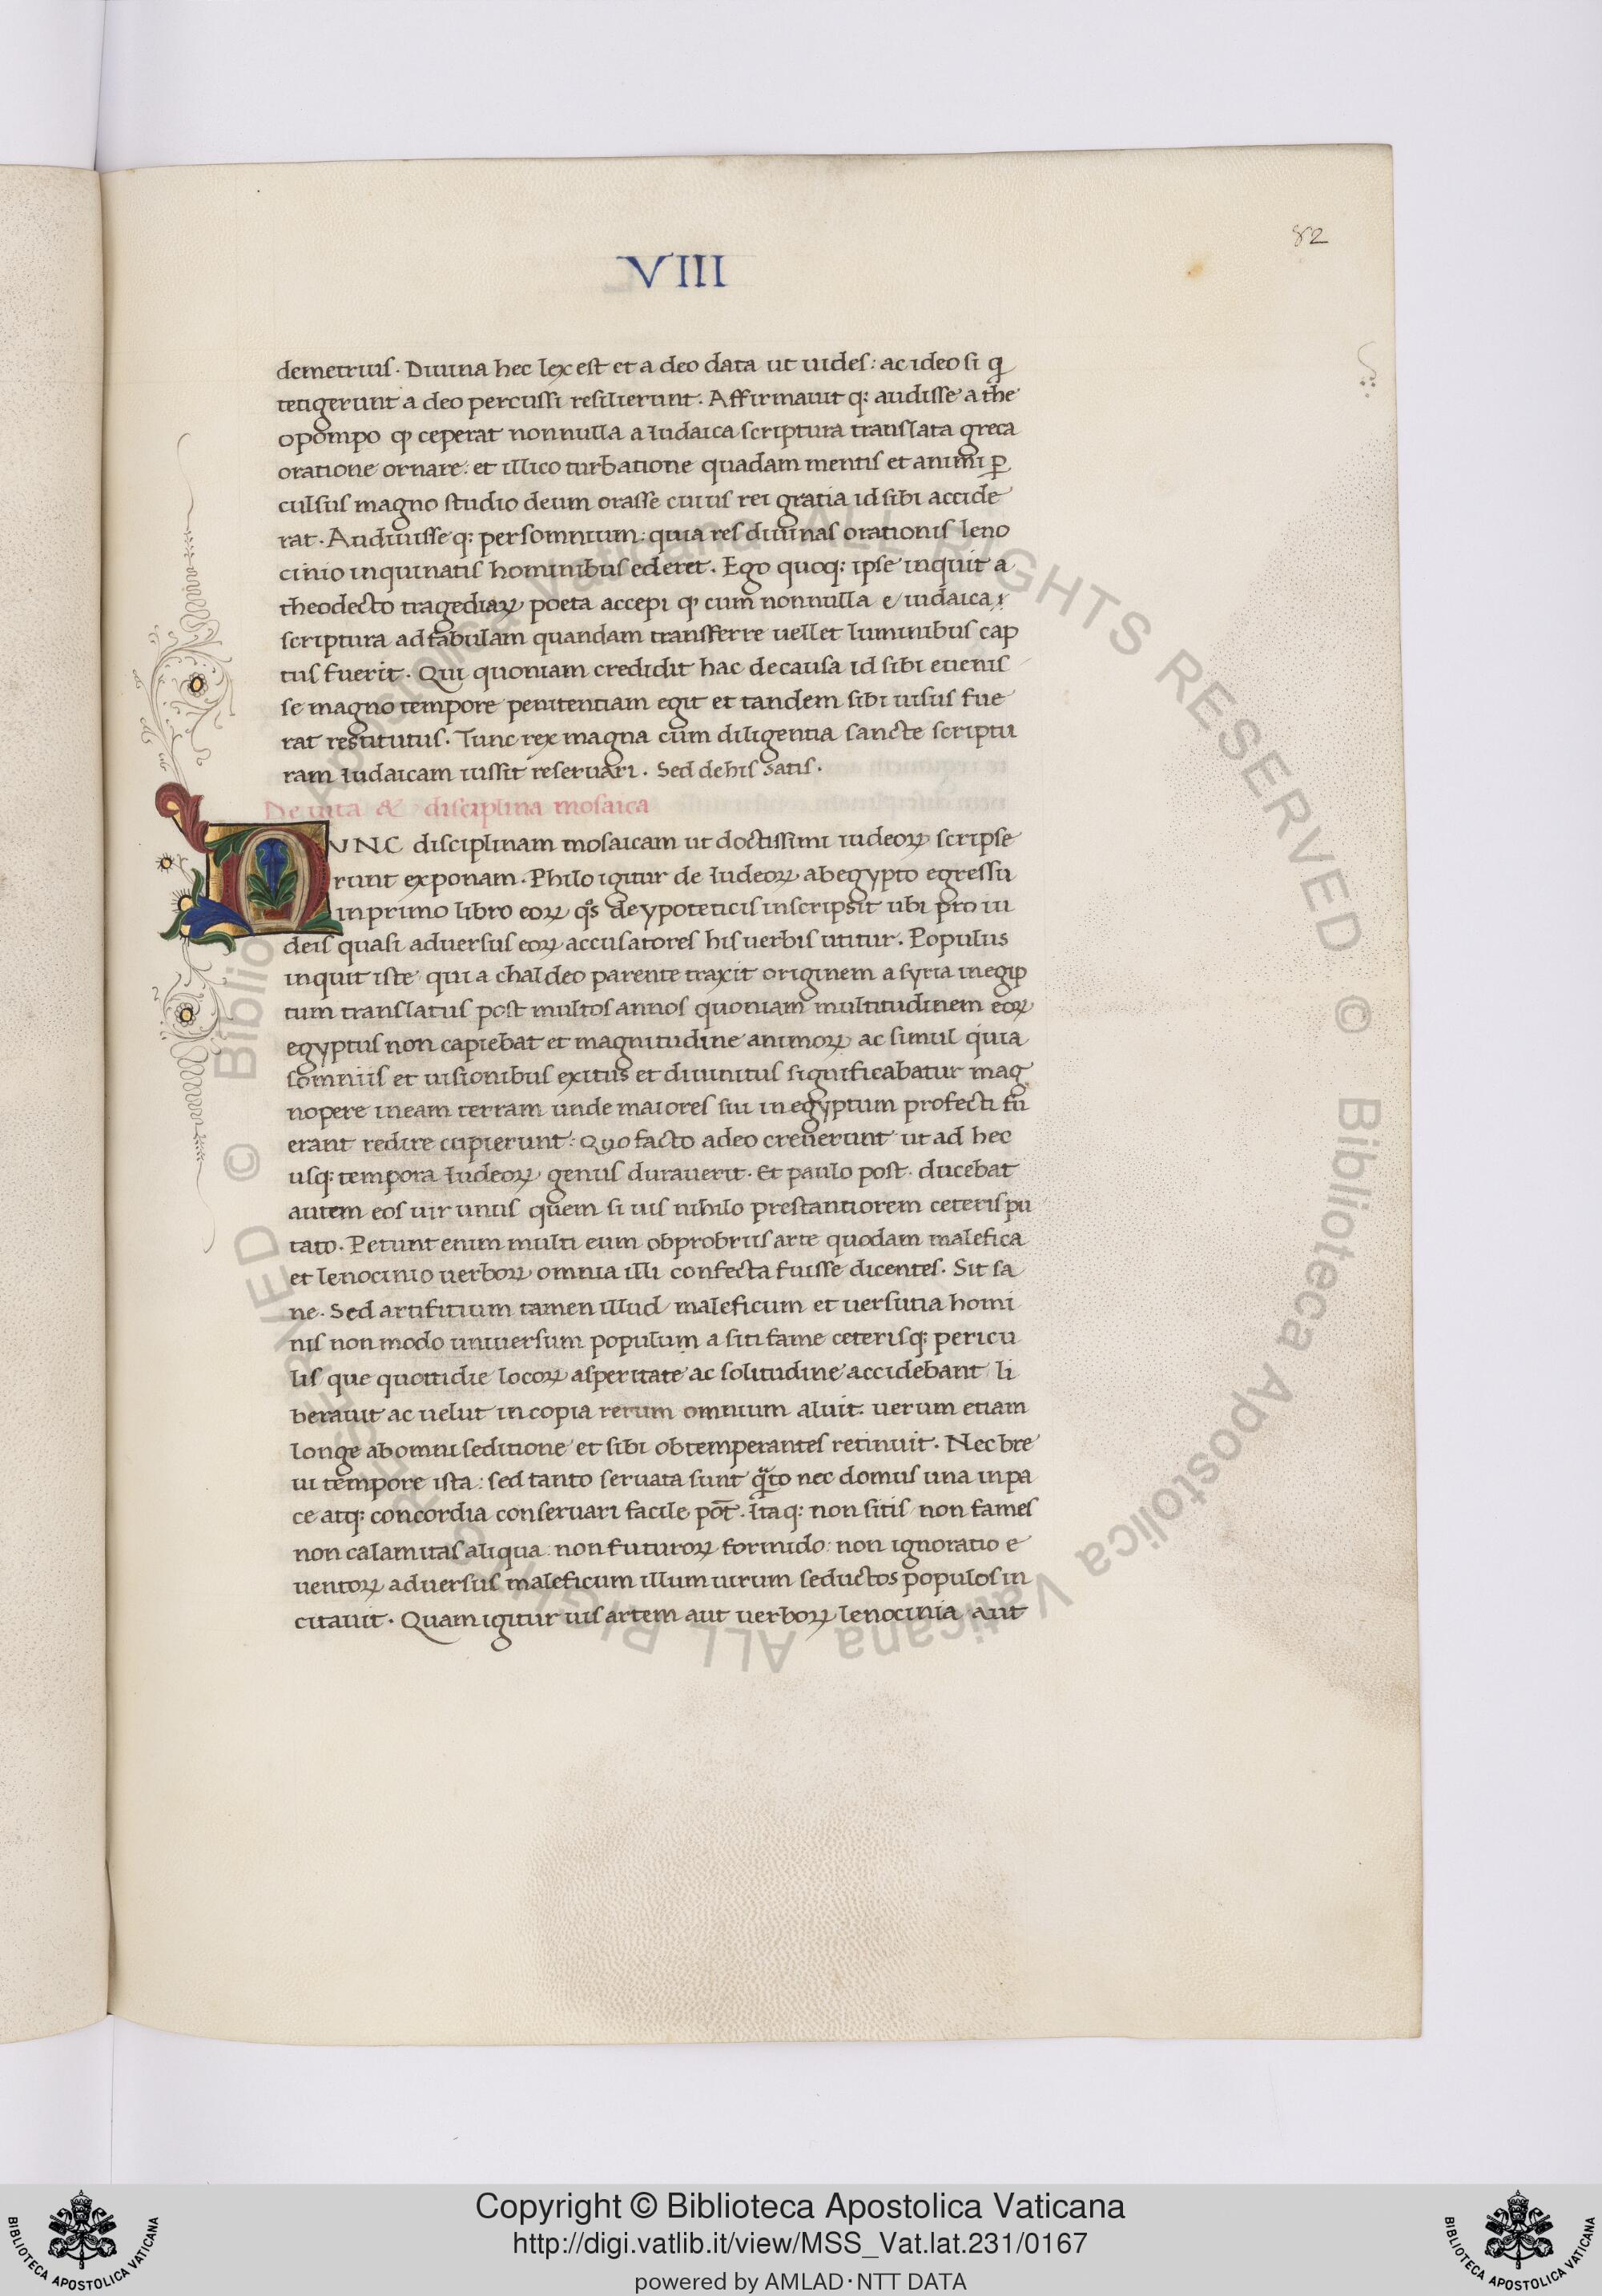 82
VIII
demetrius. Diuina hec lex est et a deo data ut uides: ac ideo si qͥ
tetigerunt a deo percussi resilierunt. Affirmauit q; audisse a the
opompo ꝙ ceperat nonnulla a iudaica scriptura translata greca
oratione ornare: et illico turbatione quadam mentis et animi ꝑ
culsus magno studio deum orasse cuius rei gratia id sibi accide
rat. Audiuisse q; per somnium: quia res diuinas orationis leno
cinio inquinatis hominibus ederet. Ego quoq; ipse inquit a
theodecto tragediaꝝ poeta accepi ꝙ cum nonnulla e iudaica
scriptura ad fabulam quandam transferre uellet luminibus cap
tus fuerit. Qui quoniam credidit hac de causa id sibi euenis
se magno tempore penitentiam egit et tandem sibi uisus fue
rat restitutus. Tunc rex magna cum diligentia sancte scriptu
ram iudaicam iussit reseruari. Sed de his satis.
De uita & disciplina mosaica
NVNC disciplinam mosaicam ut doctissimi iudeoꝝ scripse
runt exponam. Philo igitur de iudeoꝝ ab egypto egressu
in primo libro eoꝝ qͦs de ypoteticis inscripsit ubi pro iu
deis quasi aduersus eoꝝ accusatores his uerbis utitur. Populus
inquit iste qui a chaldeo parente traxit originem a syria in egip
tum translatus post multos annos quoniam multitudinem eoꝝ
egyptus non capiebat et magnitudine animoꝝ ac simul quia
somniis et uisionibus exitus et diuinitus significabatur mag
nopere in eam terram unde maiores sui in egyptum profecti fu
erant redire cupierunt: Quo facto adeo creuerunt ut ad hec
usq; tempora iudeoꝝ genus durauerit. Et paulo post. ducebat
autem eos uir unus quem si uis nihilo prestantiorem ceteris pu
tato. Petunt enim multi eum obprobriis arte quodam malefica
et lenocinio uerboꝝ omnia illi confecta fuisse dicentes. Sit sa
ne. Sed artifitium tamen illud maleficum et uersutia homi
nis non modo uniuersum populum a siti fame ceterisq; pericu
lis que quottidie locoꝝ asperitate ac solitudine accidebant li
berauit ac uelut in copia rerum omnium aluit. uerum etiam
longe ab omni seditione et sibi obtemperantes retinuit. Nec bre
ui tempore ista: sed tanto seruata sunt qᷓto nec domus una in pa
ce atq; concordia conseruari facile pōt. Itaq; non sitis non fames
non calamitas aliqua: non futuroꝝ formido: non ignoratio e
uentoꝝ aduersus maleficum illum uirum seductos populos in
citauit. Quam igitur uis artem aut uerboꝝ lenocinia aut
© Biblioteca Apostolica Vaticana ALL RIGHTS RESERVED © Biblioteca Apostolica Vaticana ALL RIGHTS RESERVED
Copyright © Biblioteca Apostolica Vaticana
http://digi.vatlib.it/view/MSS_Vat.lat.231/0167
powered by AMLAD·NTT DATA
BIBLIOTECA APOSTOLICA VATICANA
BIBLIOTECA APOSTOLICA VATICANA